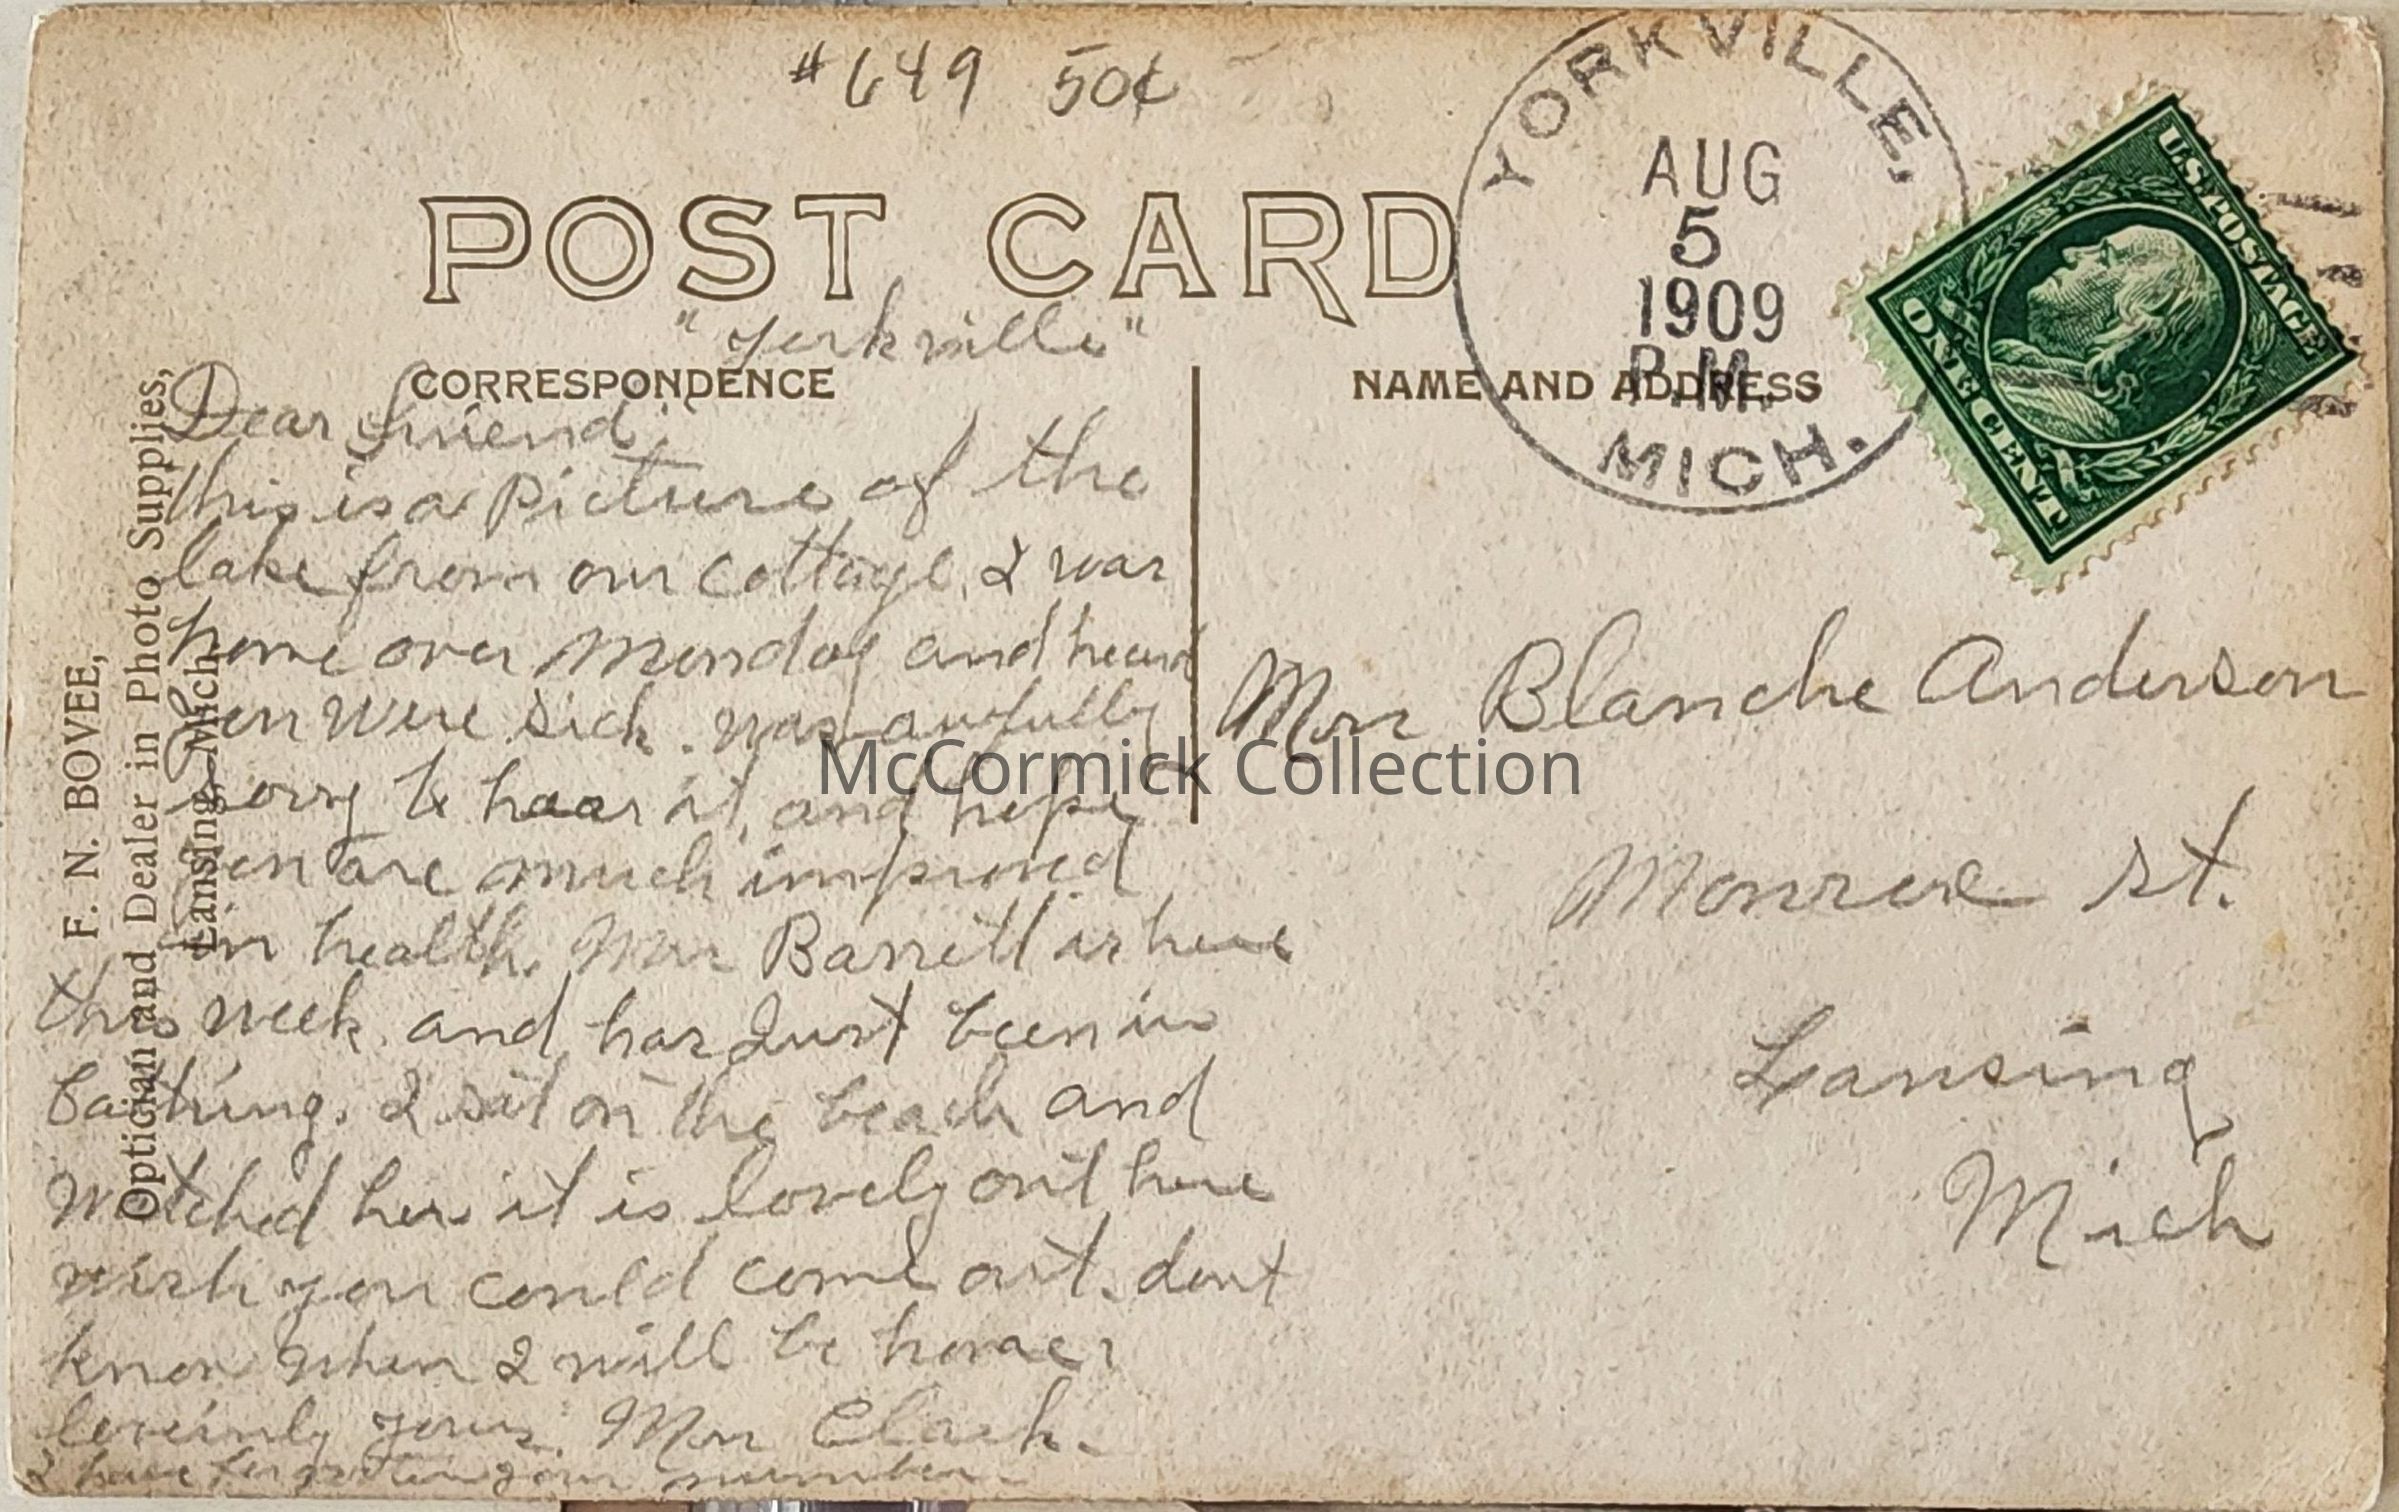 #649 50¢
YORKVILLE,
AUG
5
1909
P.M.
MICH.
U.S. POSTAGE
ONE CENT
POST CARD
"Yorkville"
CORRESPONDENCE
NAME AND ADDRESS
F. N. BOVEE,
Optician and Dealer in Photo Supplies,
Lansing, Mich.
Dear Friend,
this is a picture of the
lake from our cottage. I was
home over Monday and heard
you were sick. was awfully
sorry to haear it, and hope
you are much improved
in health. Mrs Barrett is here
this week. and has Just been in
bathing. I sat on the beach and
watched her. it is lovely out here
wish you could come out. dont
know when I will be home.
loveingly yours, Mrs Clark.
I have forgotten your number.
Mrs Blanche Anderson
Monroe St.
Lansing
Mich
McCormick Collection